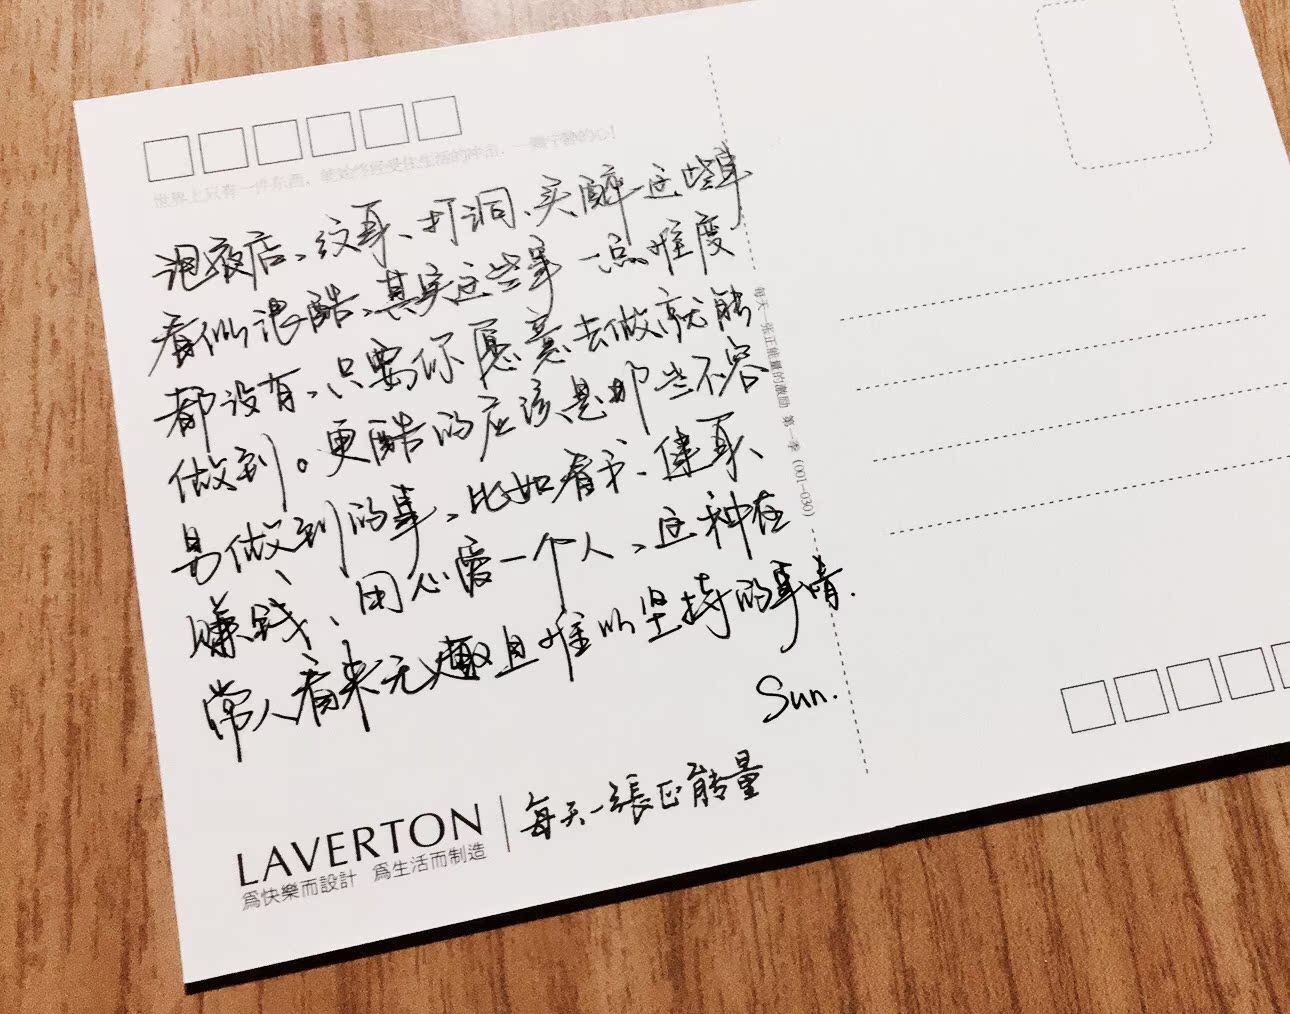 世界上只有一件东西，能始终经受住生活的冲击：一颗宁静的心！
泡夜店、纹身、打洞、买醉、这些事
看似很酷、其实这些事一点难度
都没有、只要你愿意去做就能
做到。更酷的应该是那些不容
易做到的事、比如看书、健身、
赚钱、用心爱一个人、这种在
常人看来无趣且难以坚持的事情.
Sun.
LAVERTON
為快樂而設計 為生活而制造
每天一張正能量
每天一张正能量的激励 第一季 (001-030)